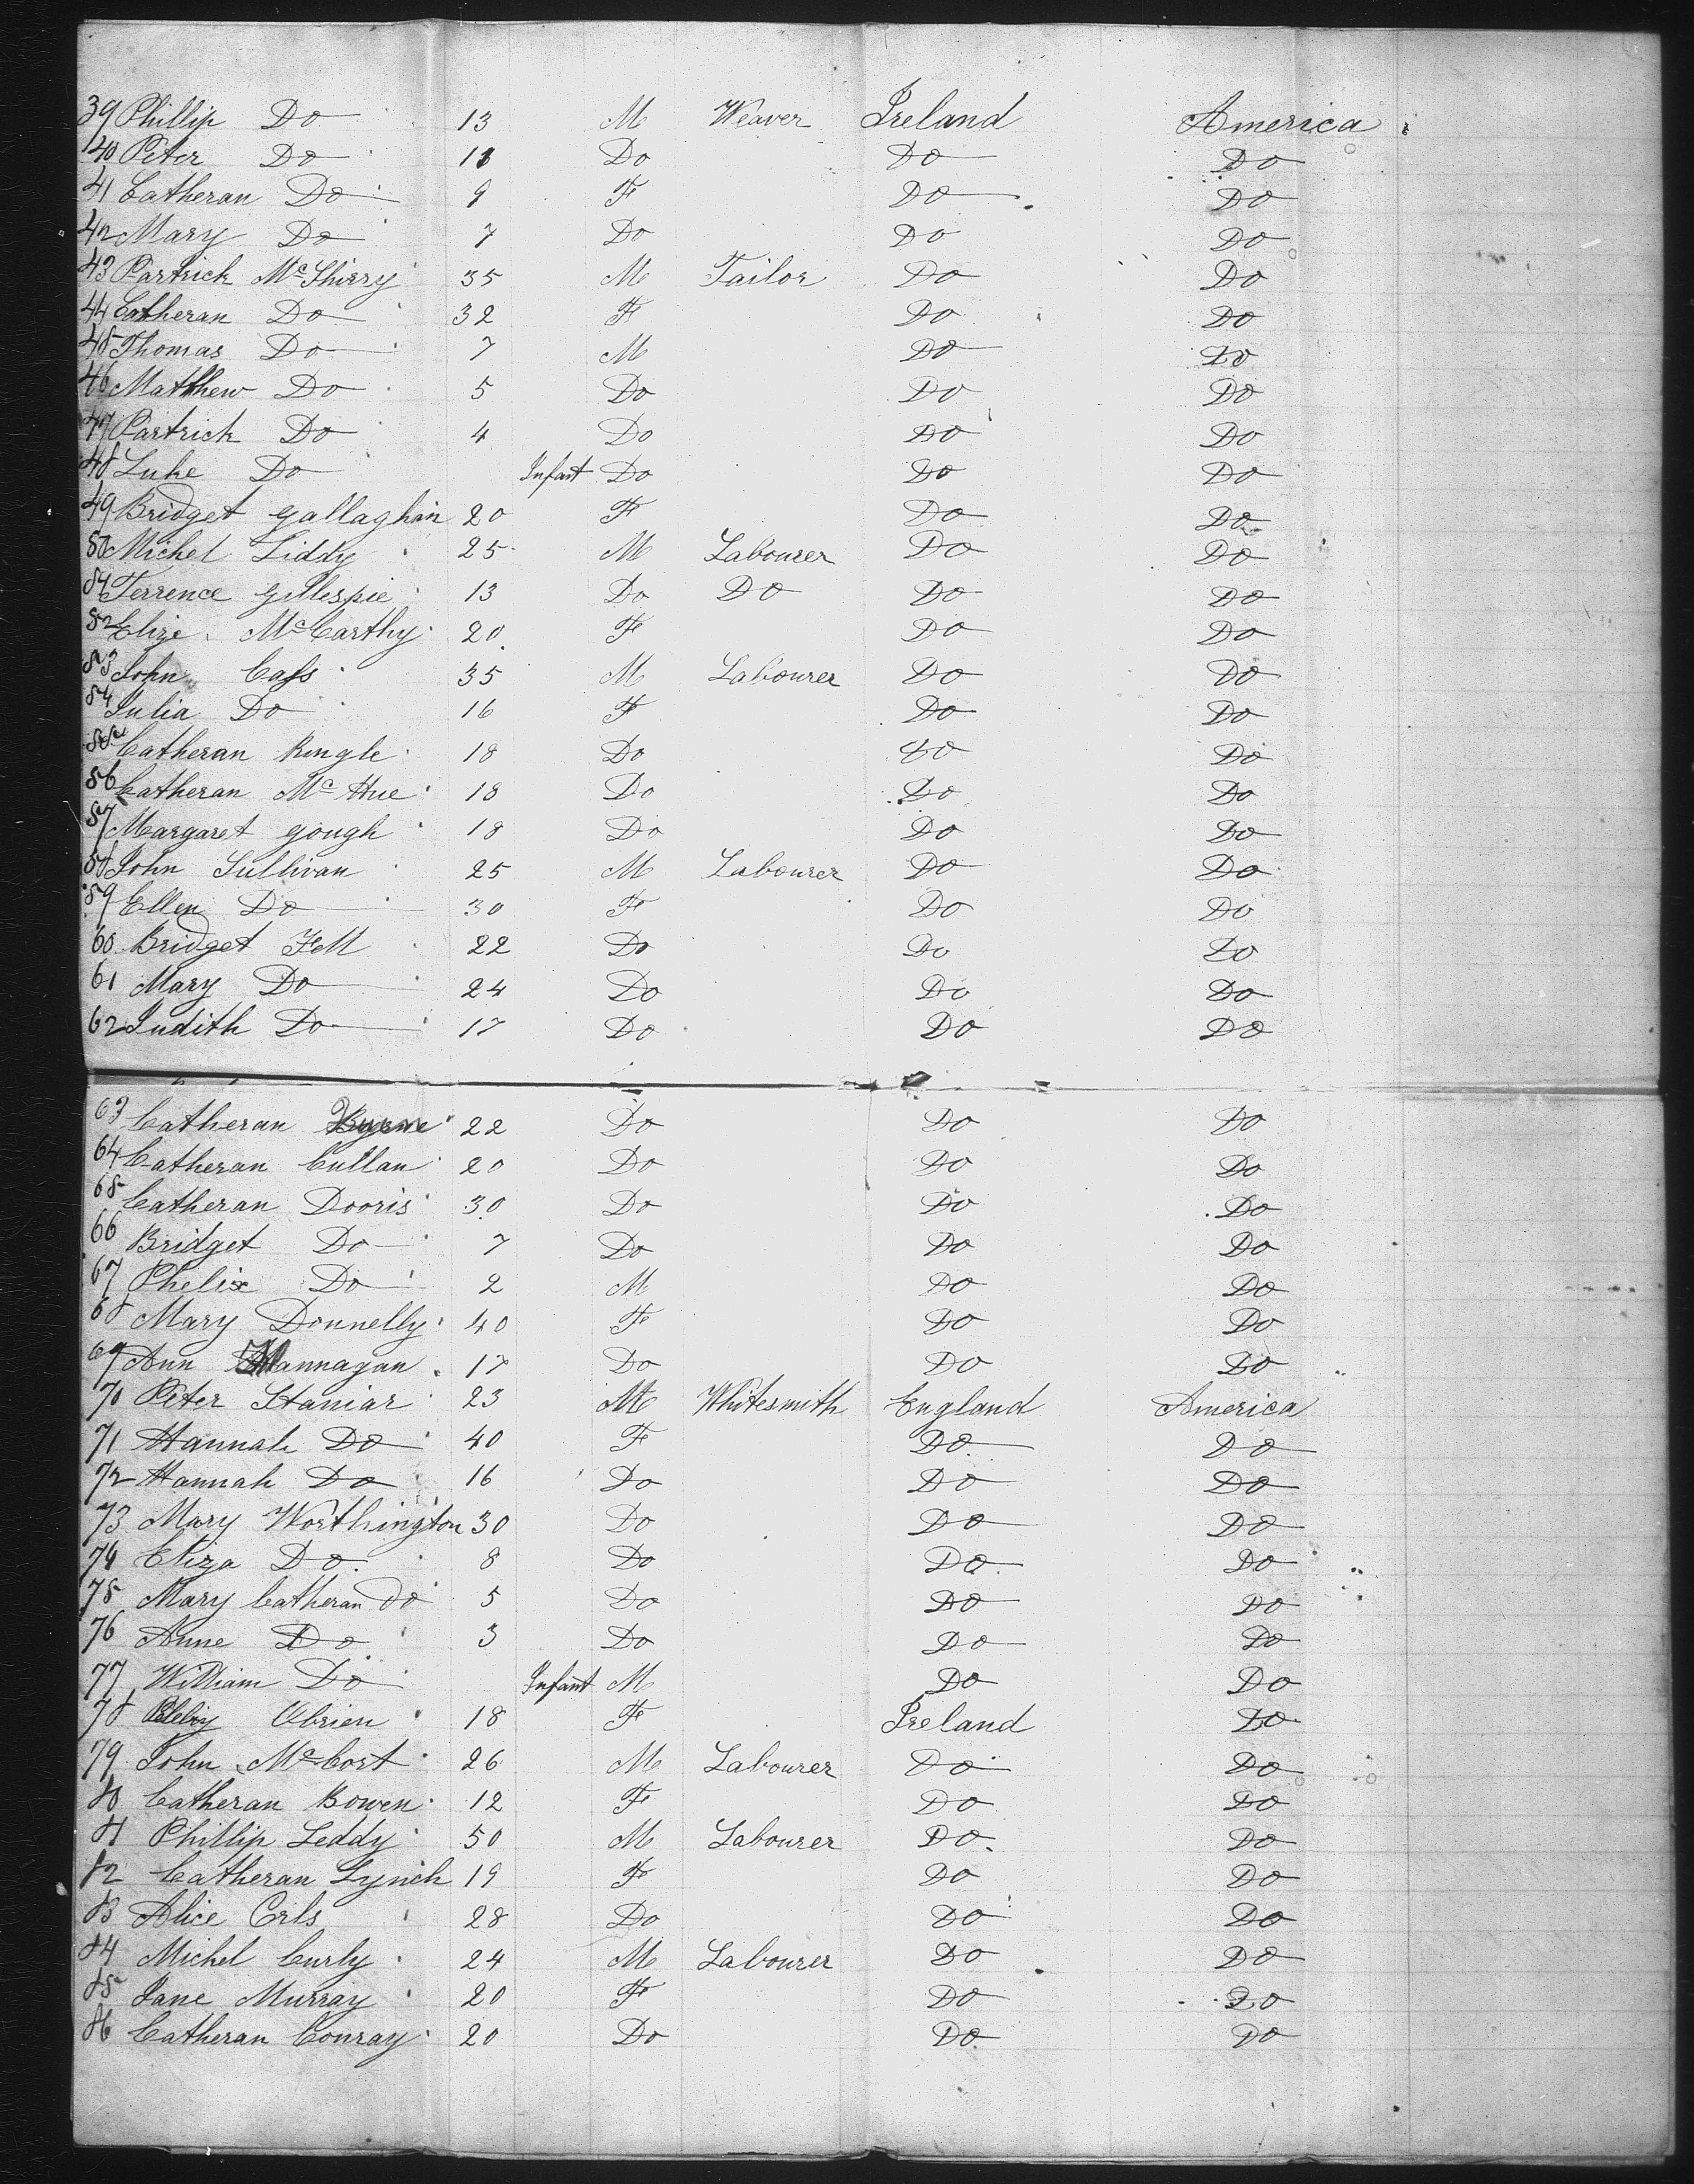 39 Phillip Do 13 M Weaver Ireland America
40 Peter Do 11 Do Do Do
41 Catheran Do 9 F Do Do
42 Mary Do 7 Do Do Do
43 Partrick McShirry 35 M Tailor Do Do
44 Catheran Do 32 F Do Do
45 Thomas Do 7 M Do Do
46 Matthew Do 5 Do Do Do
47 Partrick Do 4 Do Do Do
48 Luke Do Infant Do Do Do
49 Bridget gallaghan 20 F Do Do
50 Michel Liddy 25 M Labourer Do Do
51 Terrence gillespie 13 Do Do Do Do
52 Elize McCarthy 20 F Do Do
53 John Cass 35 M Labourer Do Do
54 Julia Do 16 F Do Do
55 Catheran Rengle 18 Do Do Do
56 Catheran McHue 18 Do Do Do
57 Margaret gough 18 Do Do Do
58 John Sullivan 25 M Labourer Do Do
59 Ellen Do 30 F Do Do
60 Bridget 22 Do Do Do
61 Mary Do 24 Do Do Do
62 Judith Do 17 Do Do Do
63 Catheran Byrne 22 Do Do Do
64 Catheran Cullan 20 Do Do Do
65 Catheran Dooris 30 Do Do Do
66 Bridget Do 7 Do Do Do
67 Phelix Do 2 M Do Do
68 Mary Donnelly 40 F Do Do
69 Ann 17 Do Do Do
70 Peter Staniar 23 M Whitesmith England America
71 Hannah Do 40 F Do Do
72 Hannah Do 16 Do Do Do
73 Mary Worthington 30 Do Do Do
74 Eliza Do 8 Do Do Do
75 Mary Catheran Do 5 Do Do Do
76 Anne Do 3 Do Do Do
77 William Do Infant M Do Do
78 Obrien 18 F Ireland Do
79 John McCort 26 M Labourer Do Do
80 Catheran Bowen 12 F Do Do
81 Phillip Leddy 50 M Labourer Do Do
82 Catheran Lynch 19 F Do Do
83 Alice 28 Do Do Do
84 Michel Curly 24 M Labourer Do Do
85 Jane Murray 20 F Do Do
86 Catheran Conray 20 Do Do Do